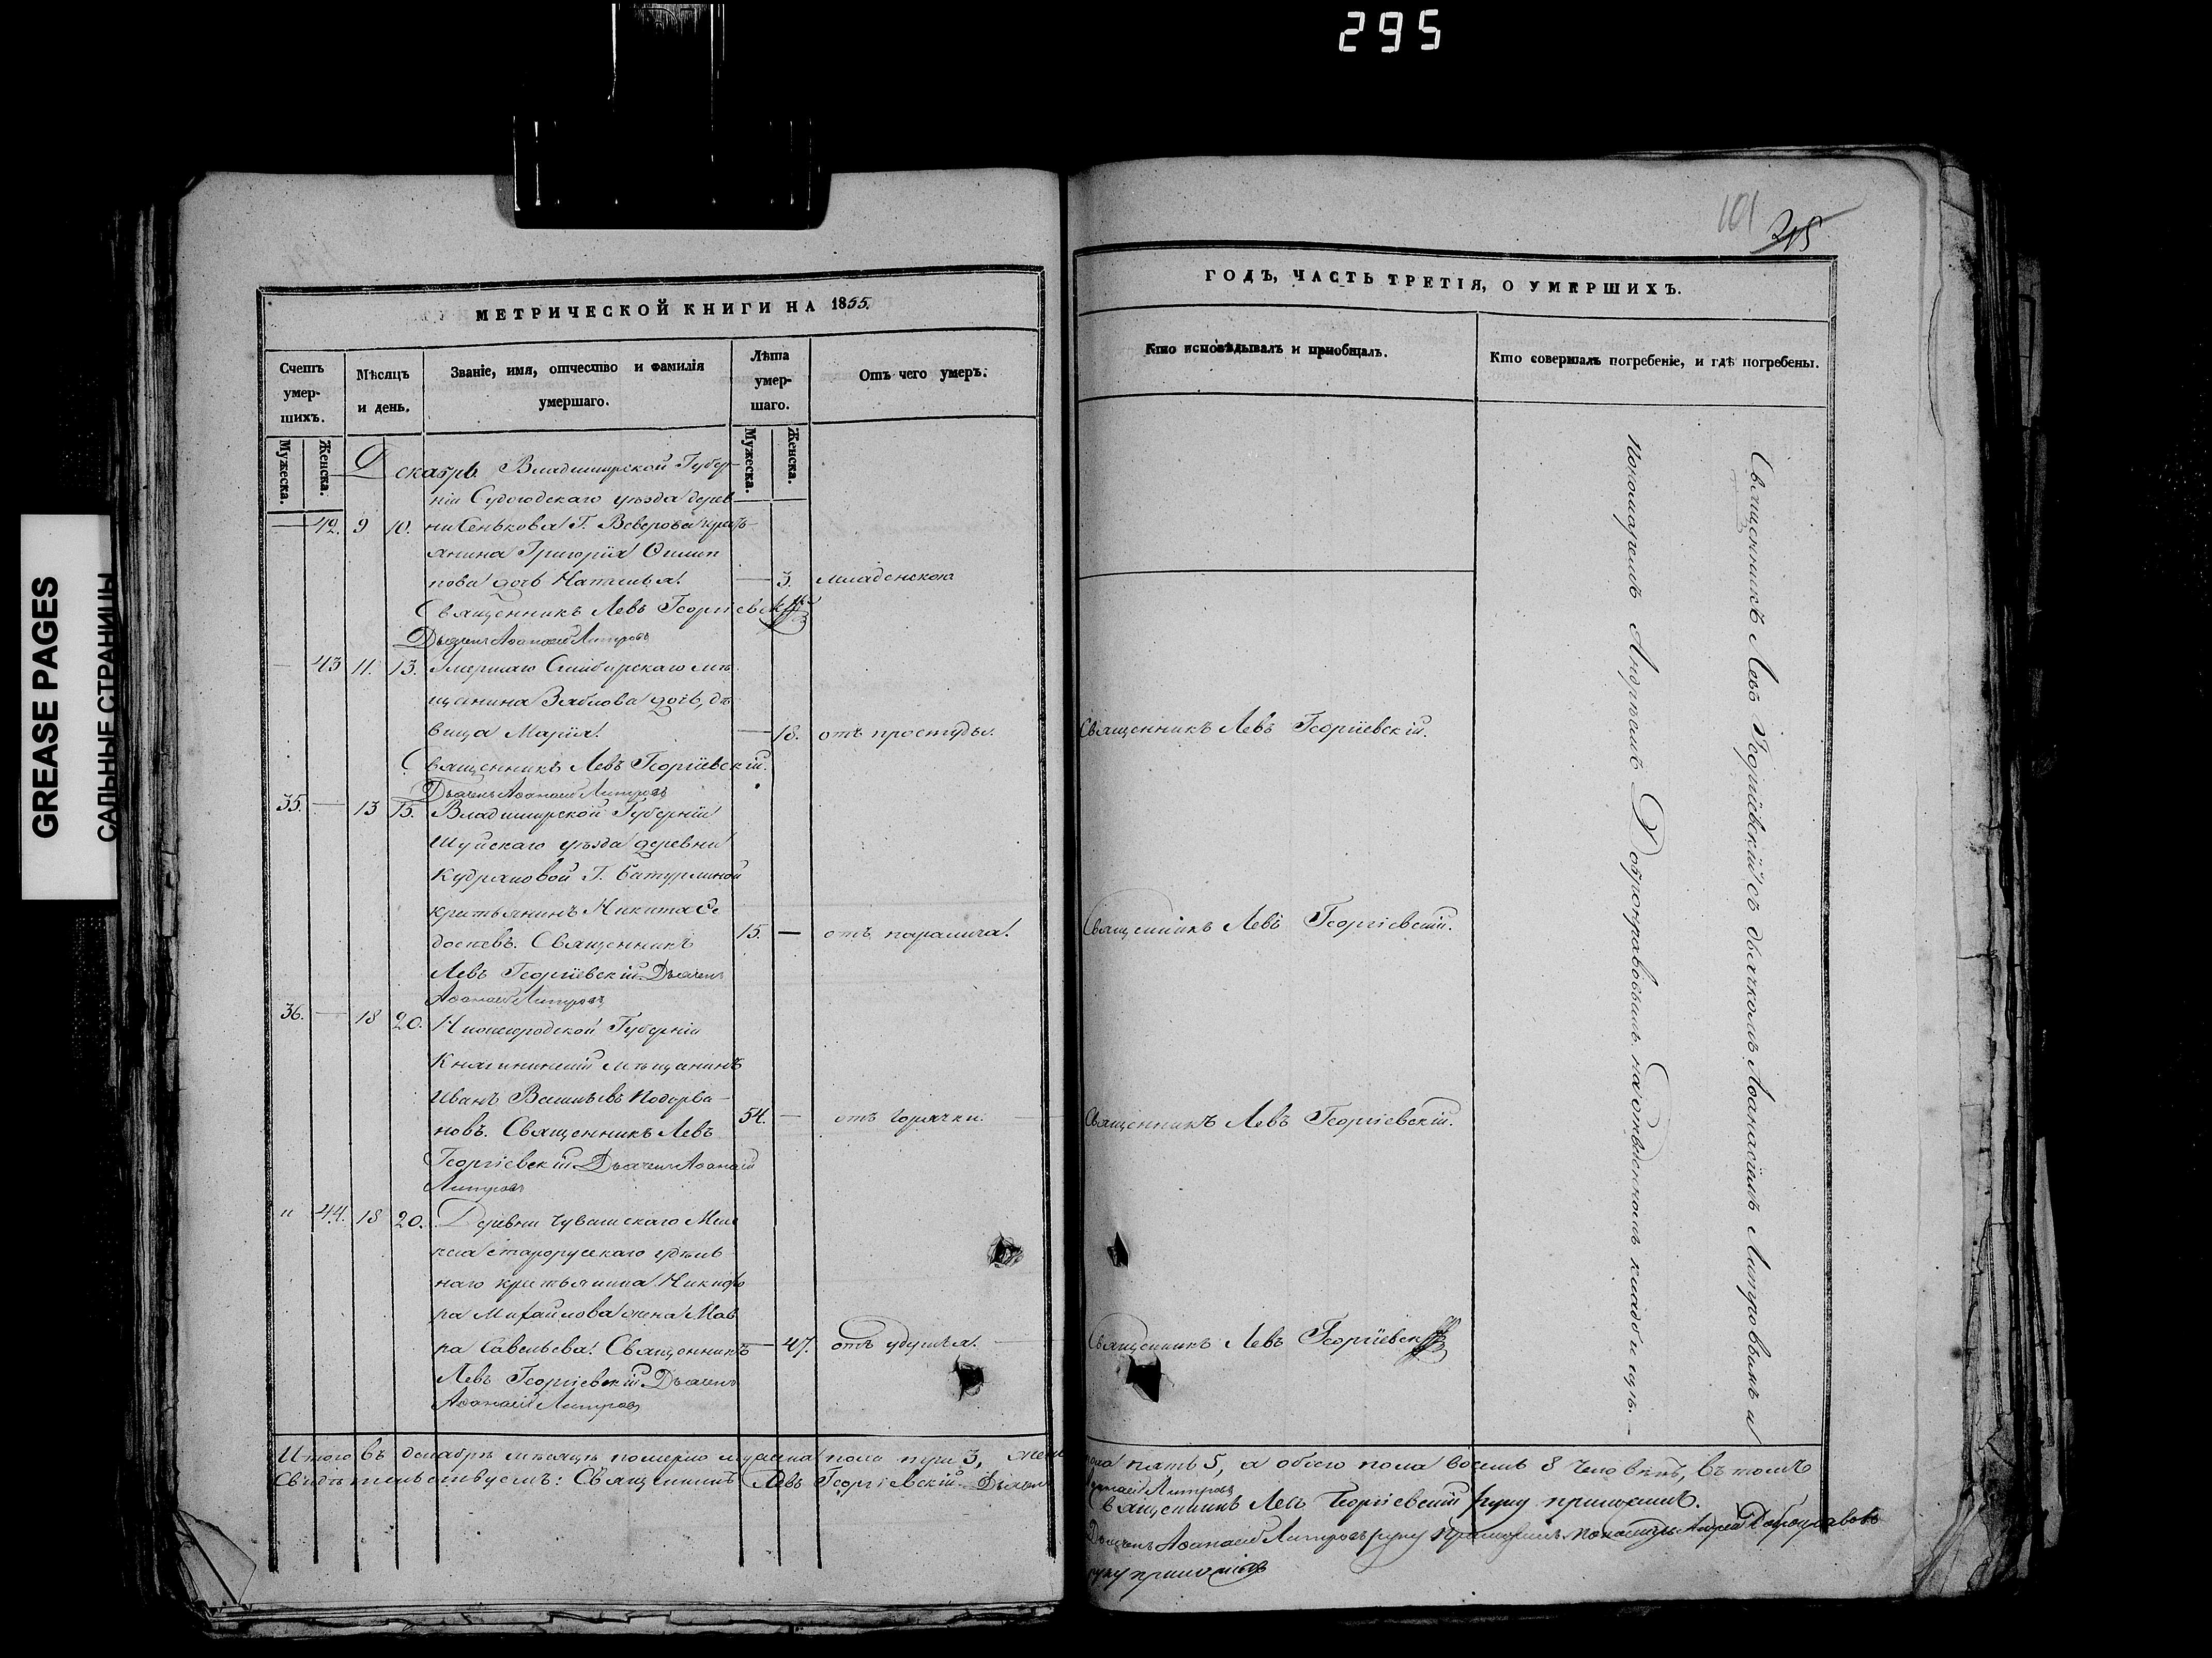 295
GREASE PAGES
САЛЬНЫЕ СТРАНИЦЫ
МЕТРИЧЕСКОЙ КНИГИ НА 1855.
Счетъ умер-шихъ.
Мужеска.
Женска.
Мѣсяцъ и день.
Званіе, имя, отчество и фамилія умершаго.
Лѣта умер-шаго.
Мужеска.
Женска.
Отъ чего умеръ.
Декабрь Владимирской Губер-
ніи Судогодскаго уѣзда дерев
42. 9 10. ни Сенькова Г.
янина Григорія
пова дочь Наталья. 3. младенскою
Священникъ Левъ Георгіевскій
Дьячекъ Аѳанасій Литровъ
43 11. 13. Умершаго Симбирскаго мѣ
щанина дочь, дѣ
вица Марія. 18. отъ простуды.
Священникъ Левъ Георгіевскій.
Дьячекъ Аѳанасій Литровъ
35. 13 15. Владимирской Губерніи
Шуйскаго уѣзда деревни
Г. Батурлиной
крестьянинъ Никита Ѳе
досѣевъ. Священникъ 15. отъ паралича.
Левъ Георгіевскій Дьячекъ
Аѳанасій Литровъ
36. 18 20. Нижегородской Губерніи
Княгининскій мѣщанинъ
Иванъ Васильевъ Подорва-
новъ. Священникъ Левъ 54. отъ горячки.
Георгіевскій Дьячекъ Аѳанасій
Литровъ
" 44. 18 20. Деревни Чувашскаго Меле
кеса старорусскаго удѣль
наго крестьянина Никифо
ра Михайлова жена Мав
ра Савельева. Священникъ 47. отъ удушья.
Левъ Георгіевскій Дьячекъ
Аѳанасій Литровъ
Итого въ декабрѣ мѣсяцѣ померло мужеска пола три 3, жен
Свидѣтельствуемъ: Священникъ Левъ Георгіевскій Дьячекъ
101 215
ГОДЪ, ЧАСТЬ ТРЕТІЯ, О УМЕРШИХЪ.
Кто исповѣдывалъ и пріобщалъ.
Кто совершалъ погребеніе, и гдѣ погребены.
Священникъ Левъ Георгіевскій.
Священникъ Левъ Георгіевскій.
Священникъ Левъ Георгіевскій.
Священникъ Левъ Георгіевскій
Священникъ Левъ Георгіевскій съ дьячкомъ Аѳанасіемъ Литровымъ и
Пономаремъ Андреемъ Добронравовымъ на отведенномъ кладбищѣ.
пола пять 5, а обоего пола восемь 8 человѣкъ, въ томъ
Аѳанасій Литровъ
Священникъ Левъ Георгіевскій руку приложилъ.
Дьячекъ Аѳанасій Литровъ руку приложилъ. Пономарь Андрей Добронравовъ
руку приложилъ